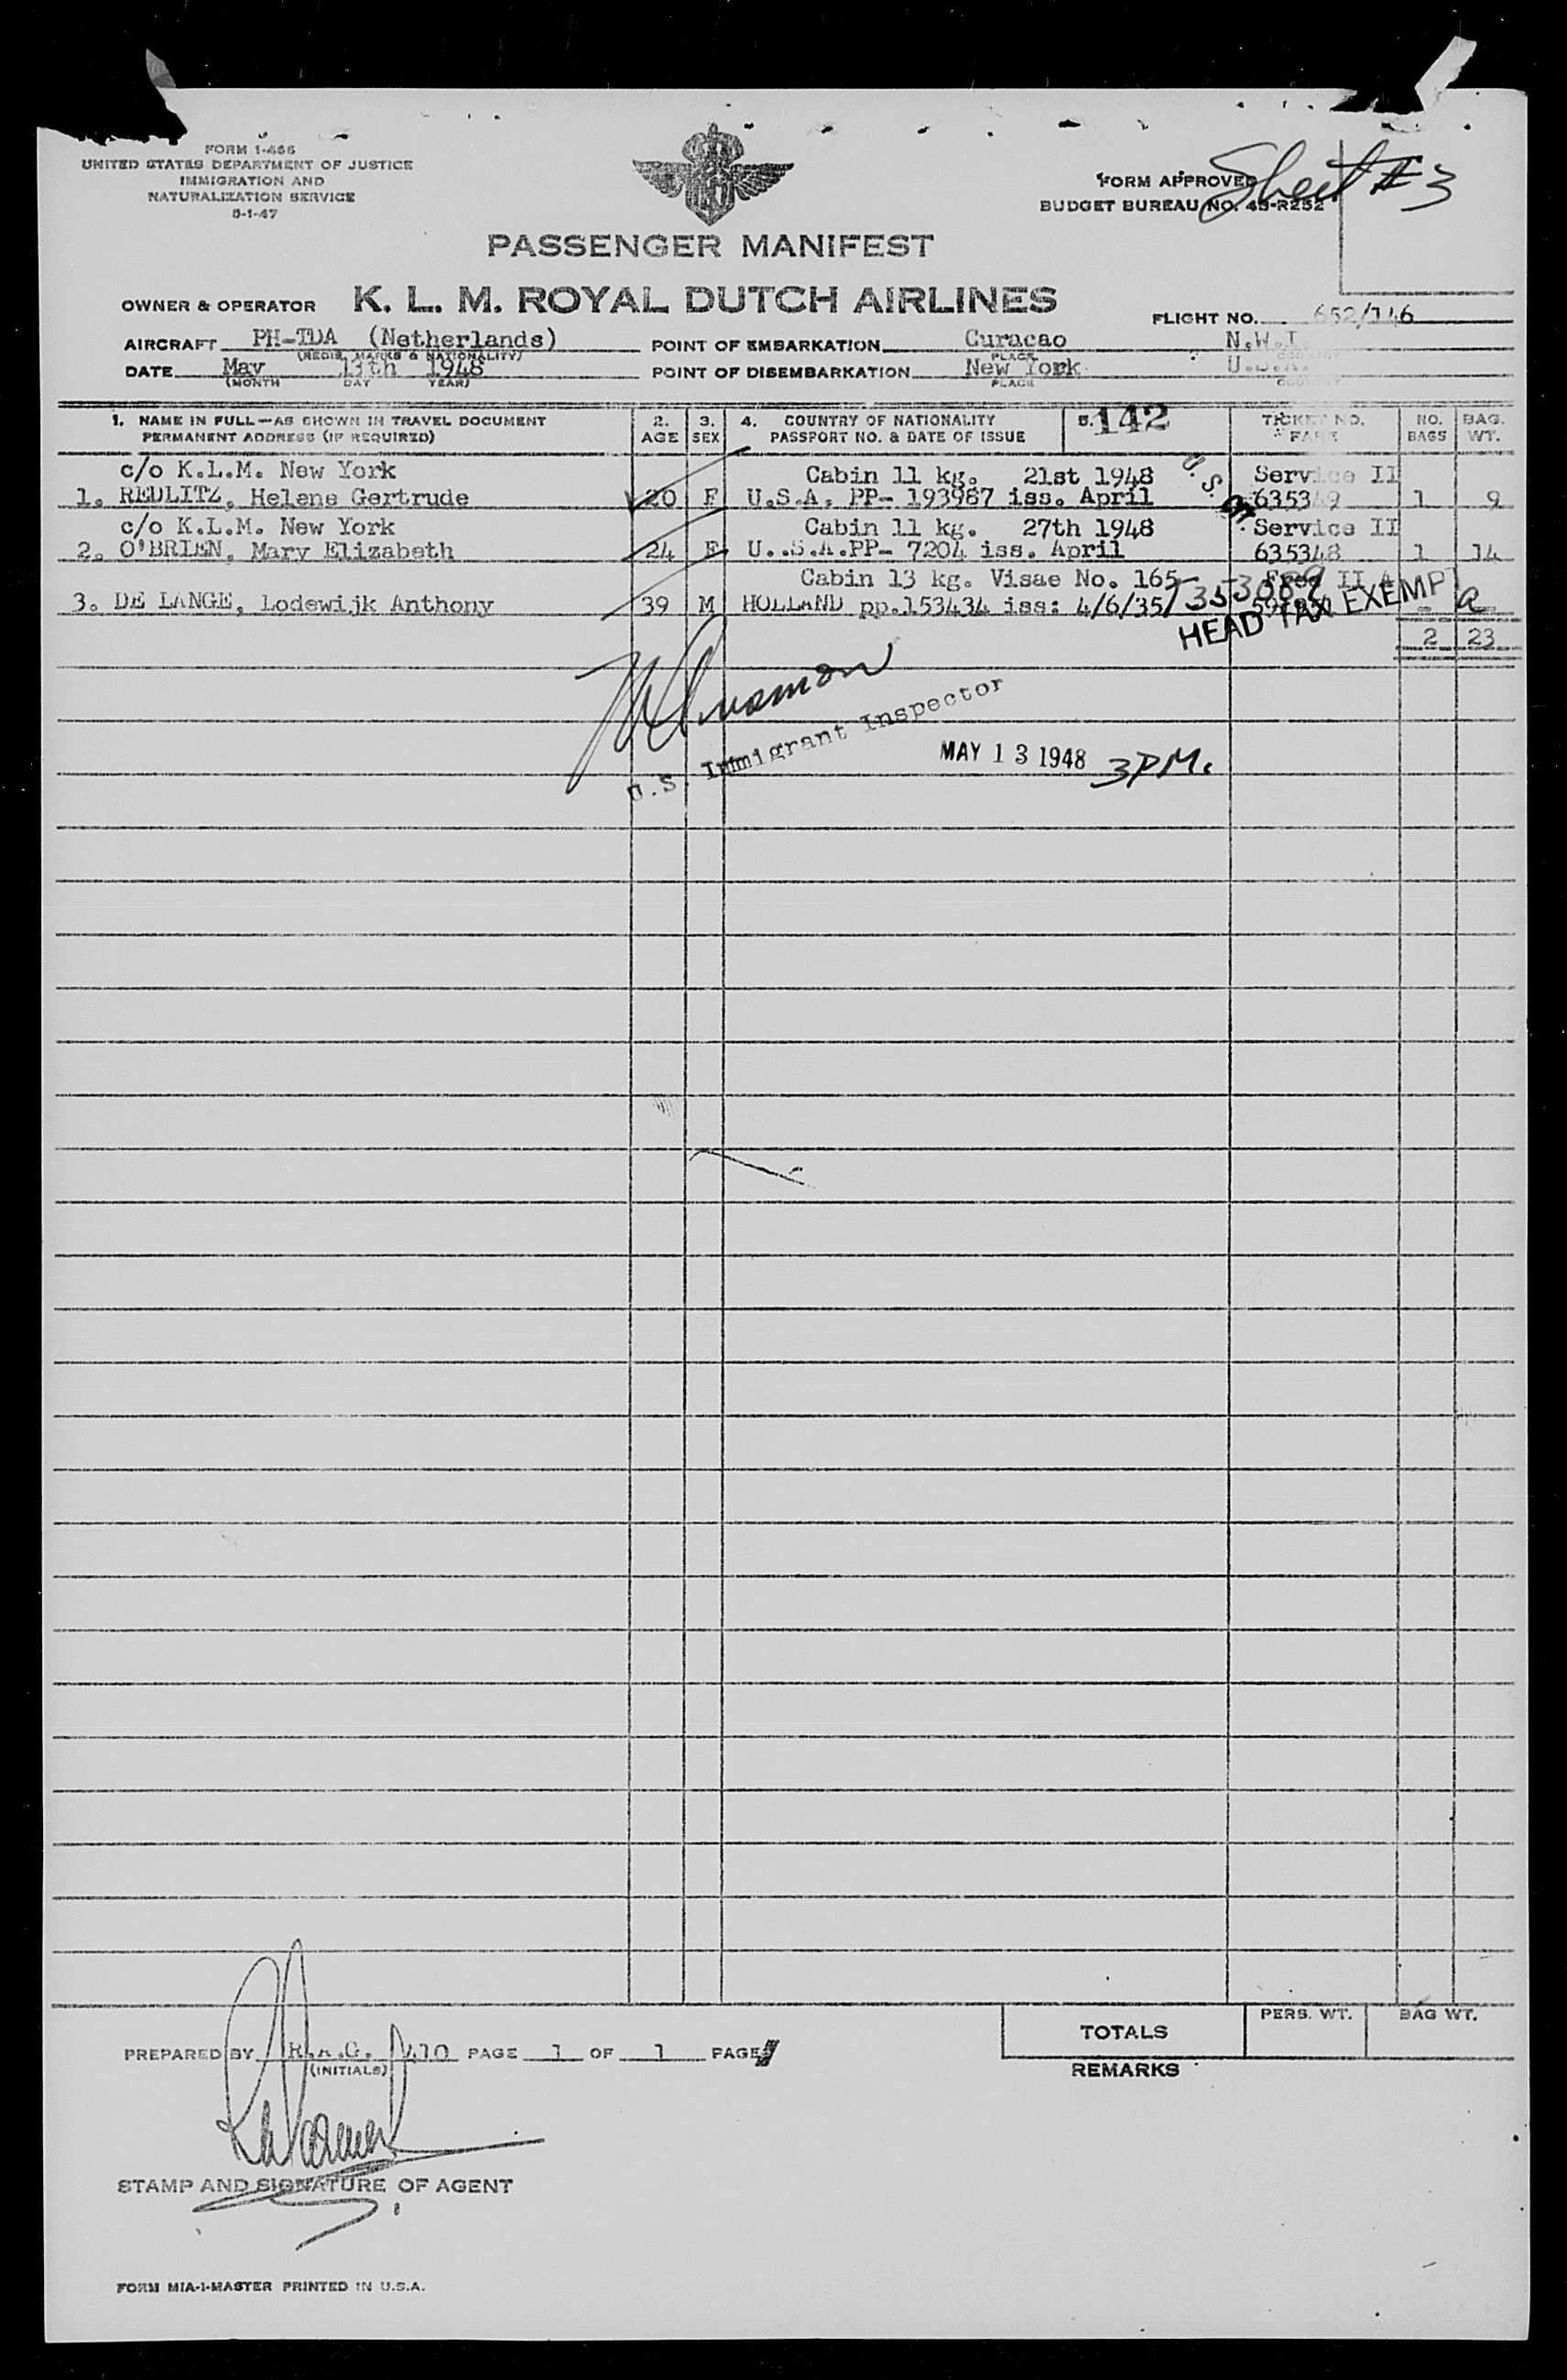 FORM I-466
UNITED STATES DEPARTMENT OF JUSTICE
IMMIGRATION AND
NATURALIZATION SERVICE
5-1-47
FORM APPROVED
BUDGET BUREAU NO. 43-R252
Sheet #3
PASSENGER MANIFEST
OWNER & OPERATOR K. L. M. ROYAL DUTCH AIRLINES
FLIGHT NO. 652/146
AIRCRAFT PH-TDA (Netherlands) POINT OF EMBARKATION Curacao N.W.I
(REGIS. MARKS & NATIONALITY) PLACE COUNTRY
DATE May 13th 1948 POINT OF DISEMBARKATION New York U.S.A.
(MONTH DAY YEAR) PLACE COUNTRY
1. NAME IN FULL—AS SHOWN IN TRAVEL DOCUMENT 2. 3. 4. COUNTRY OF NATIONALITY 5. 142 TICKET NO. NO. BAG.
PERMANENT ADDRESS (IF REQUIRED) AGE SEX PASSPORT NO. & DATE OF ISSUE FARE BAGS WT.
c/o K.L.M. New York Cabin 11 kg. 21st 1948 Service II
1. REDLITZ, Helene Gertrude 20 F U.S.A. PP- 193987 iss. April 635349 1 9
U. S.
c/o K.L.M. New York Cabin 11 kg. 27th 1948 Service II
2. O'BRIEN, Mary Elizabeth 24 F U..S.A.PP- 7204 iss. April 635348 1 14
Cabin 13 kg. Visae No. 165 Free II
3. DE LANGE, Lodewijk Anthony 39 M HOLLAND pp.153434 iss: 4/6/35 -
HEAD TAX EXEMPT
2 23
U.S. Immigrant Inspector
MAY 13 1948 3PM.
TOTALS PERS. WT. BAG WT.
PREPARED BY R.A.G. 410 PAGE 1 OF 1 PAGE
(INITIALS)
REMARKS
STAMP AND SIGNATURE OF AGENT
FORM MIA-1-MASTER PRINTED IN U.S.A.